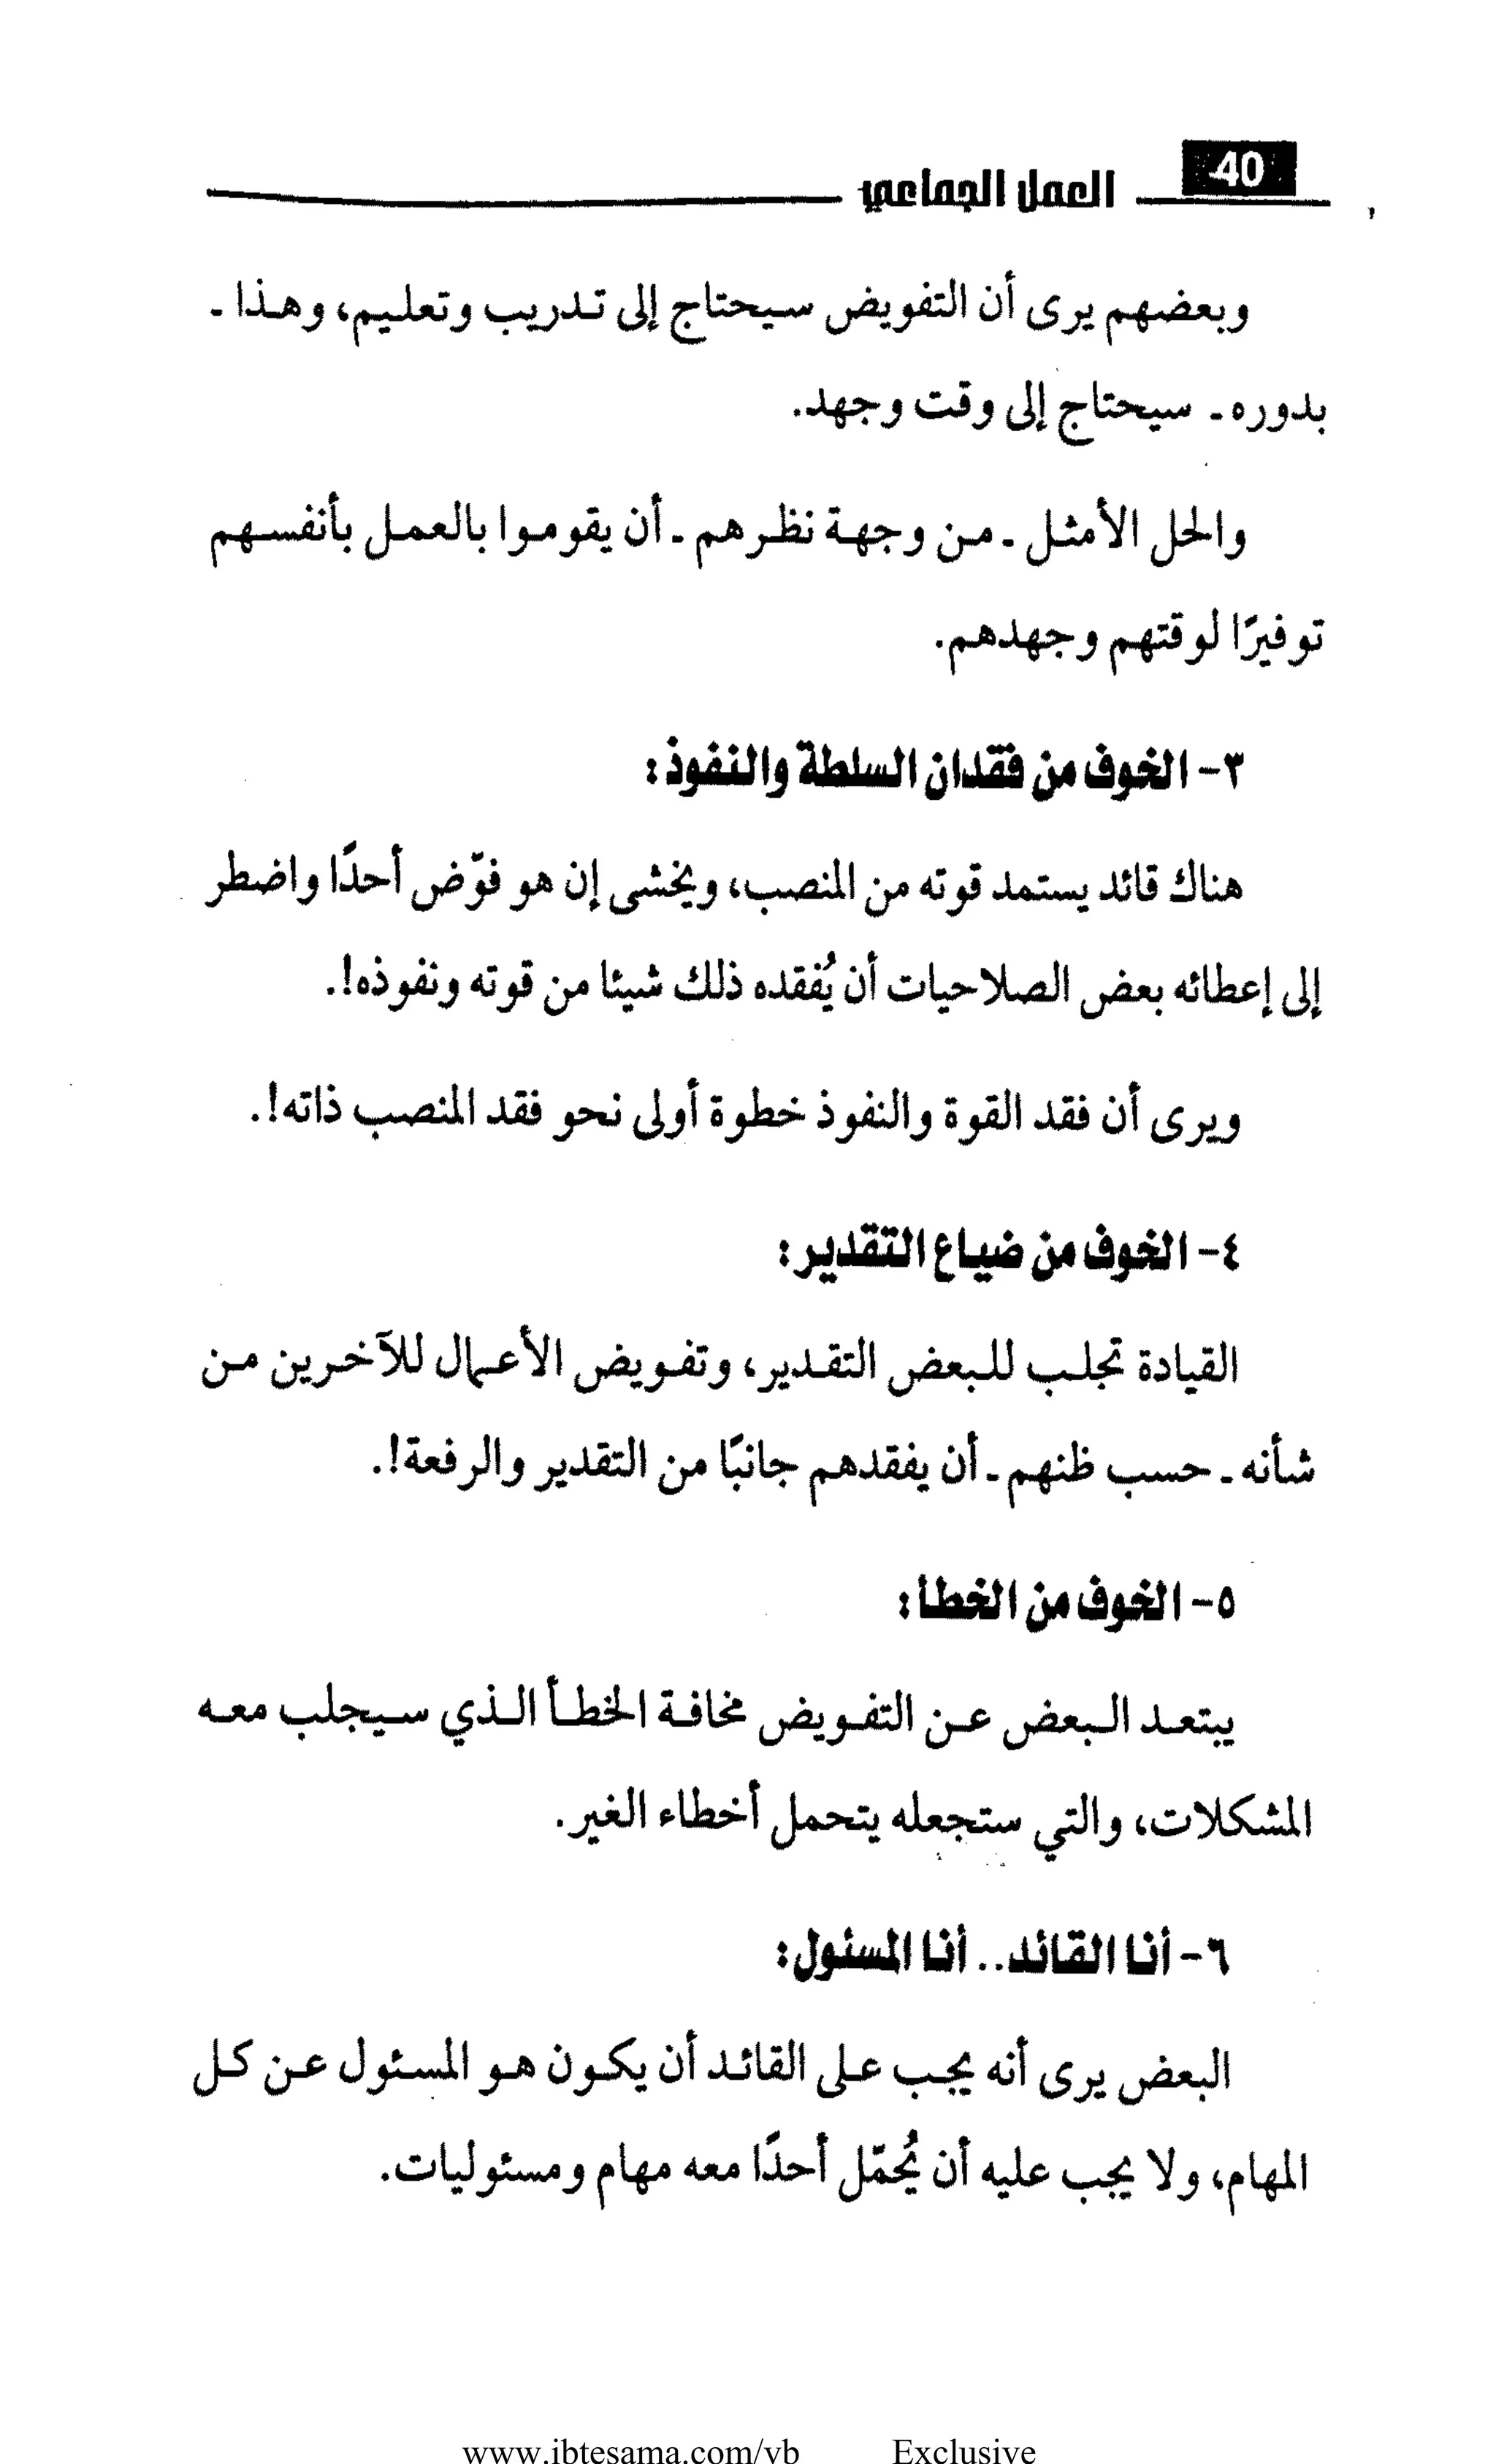 40
العمل الجماعي
وبعضهم يرى أن التفويض سيحتاج إلى تدريب وتعليم، وهذا -
بدوره - سيحتاج إلى وقت وجهد.
والحل الأمثل - من وجهة نظرهم - أن يقوموا بالعمل بأنفسهم
توفيرًا لوقتهم وجهدهم.
٣- الخوف من فقدان السلطة والنفوذ:
هناك قائد يستمد قوته من المنصب، ويخشى إن هو فوّض أحدًا واضطر
إلى إعطائه بعض الصلاحيات أن يُفقده ذلك شيئا من قوته ونفوذه!.
ويرى أن فقد القوة والنفوذ خطوة أولى نحو فقد المنصب ذاته!.
٤- الخوف من ضياع التقدير:
القيادة تجلب للبعض التقدير، وتفويض الأعمال للآخرين من
شأنه - حسب ظنهم - أن يفقدهم جانبًا من التقدير والرفعة!.
٥- الخوف من الخطأ:
يبتعد البعض عن التفويض مخافة الخطأ الذي سيجلب معه
المشكلات، والتي ستجعله يتحمل أخطاء الغير.
٦- أنا القائد.. أنا المسئول:
البعض يرى أنه يجب على القائد أن يكون هو المسئول عن كل
المهام، ولا يجب عليه أن يُحمّل أحدًا معه مهام ومسئوليات.
www.ibtesama.com/vb Exclusive